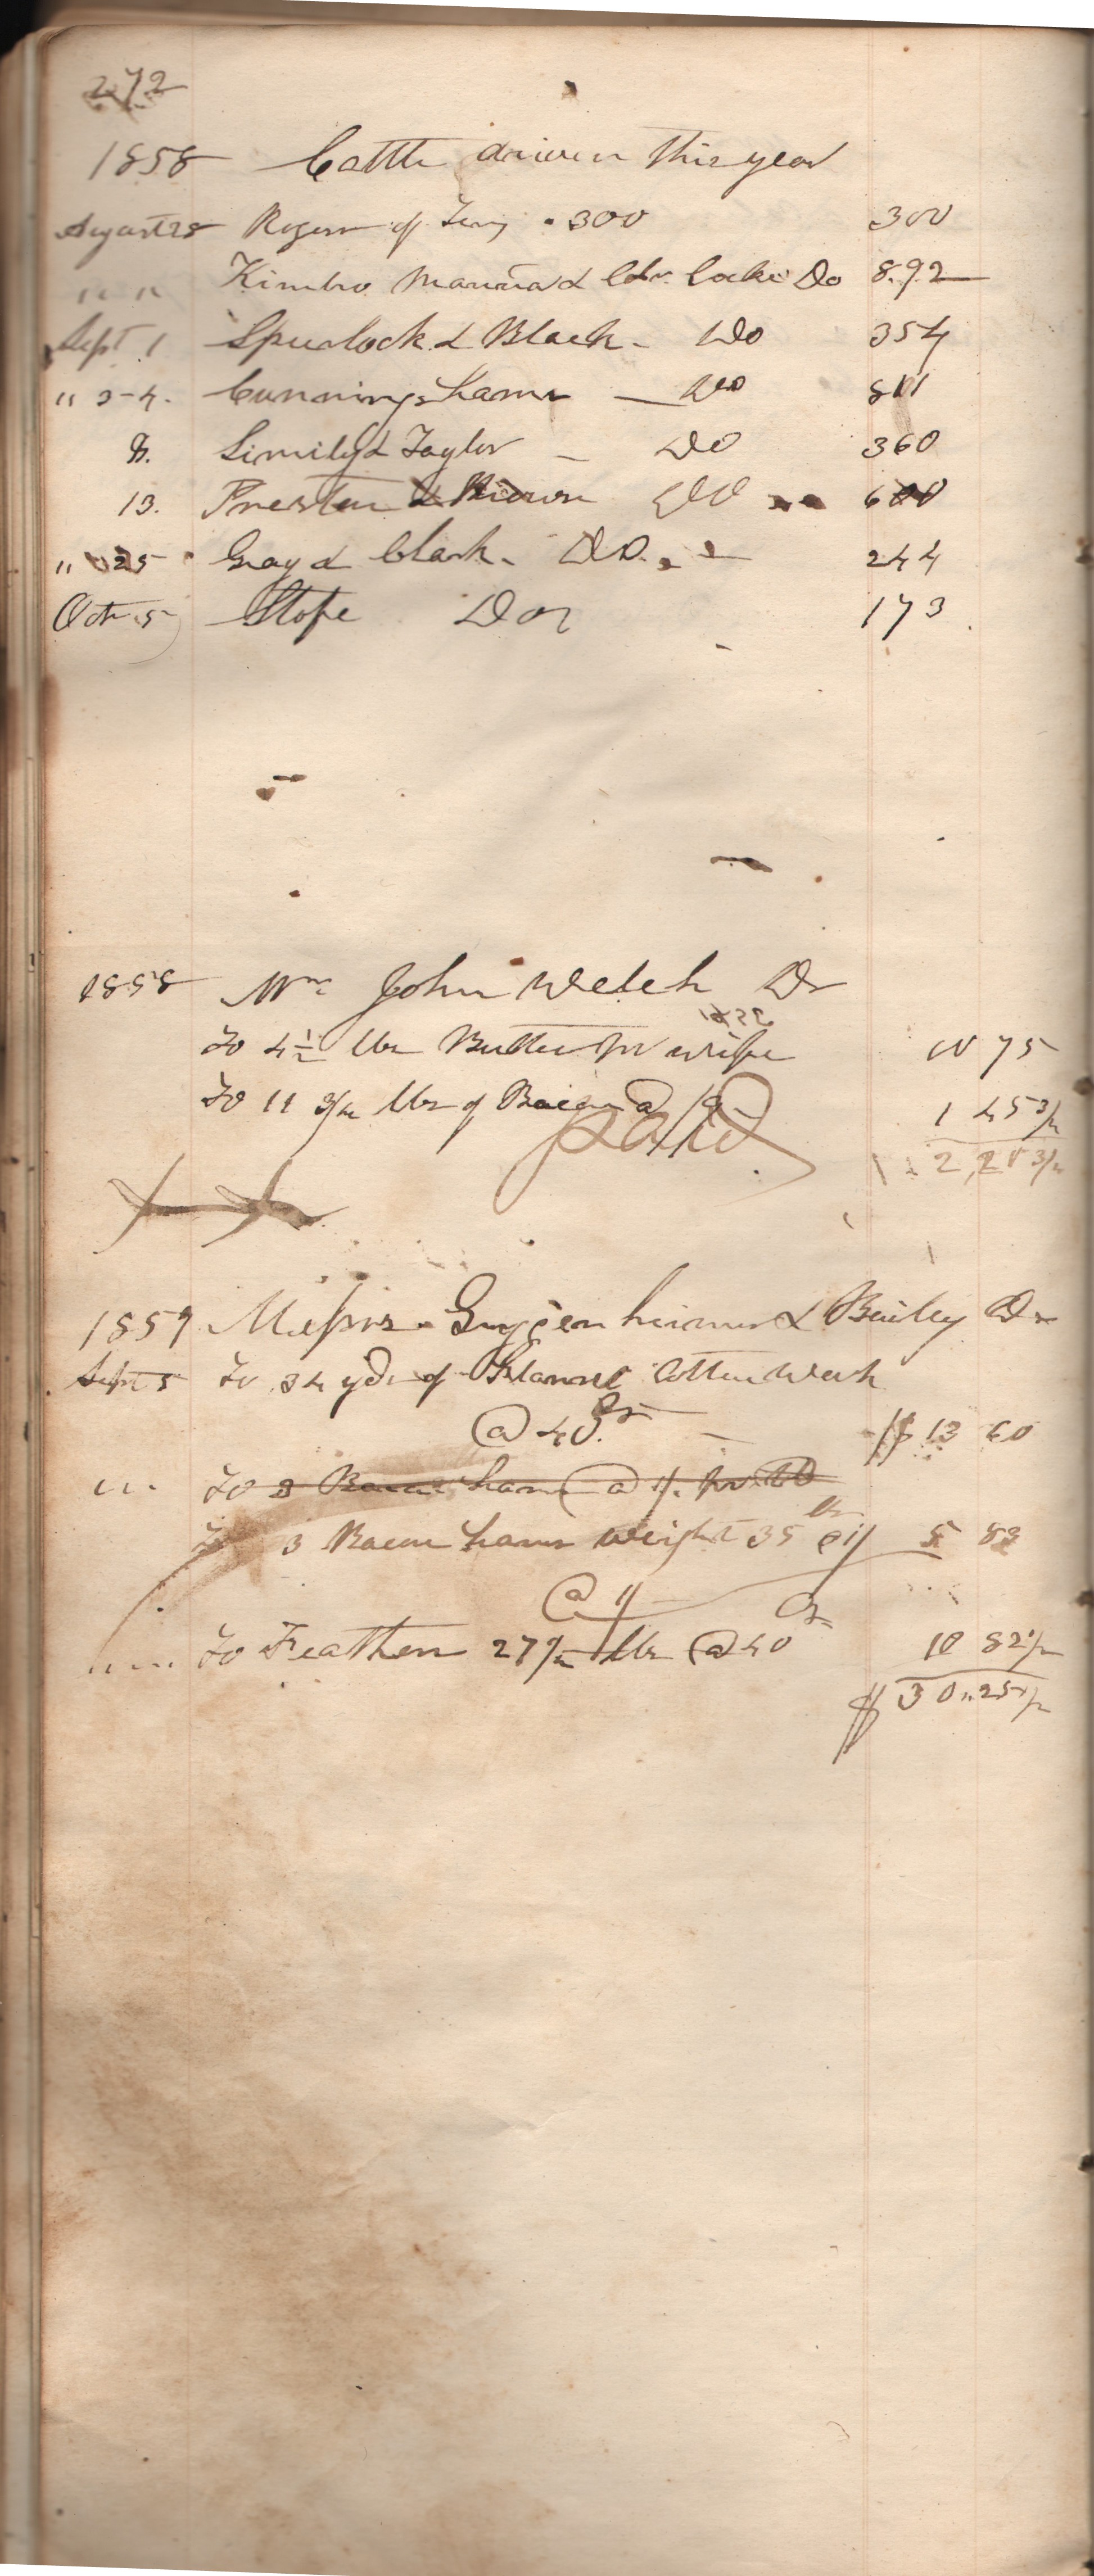 272
1858 Cattle driven this year
August 28 Rogers of Ten, 300 300
" " Kimbro & Do 892
Sept 1 Spurlock & Black - Do 354
" 3-4. Cunningham — Do 811
8. & Taylor - Do 360
13. Preston & Brown Do 600
" 25 Gray & Clark - Do. 244
Oct 5 Stope Do 173
1858 Mr John Welch Dr
To 4 1/2 lbs Butter pr wife 75
To 11 3/4 lbs of Bacon @ 1 45 3/4
paid 2,20 3/4
1859 Messrs & Bailey Dr
Sept 5 To 34 yds of Cotten
@ 40 cts — $ 13 60
" To 3 Bacon hams @
To 3 Bacon hams weight 35 lbs 5 83
@ 1/
" " To Feathers 27 lbs @ 40 cts 10 82 1/2
$ 30.25 1/2